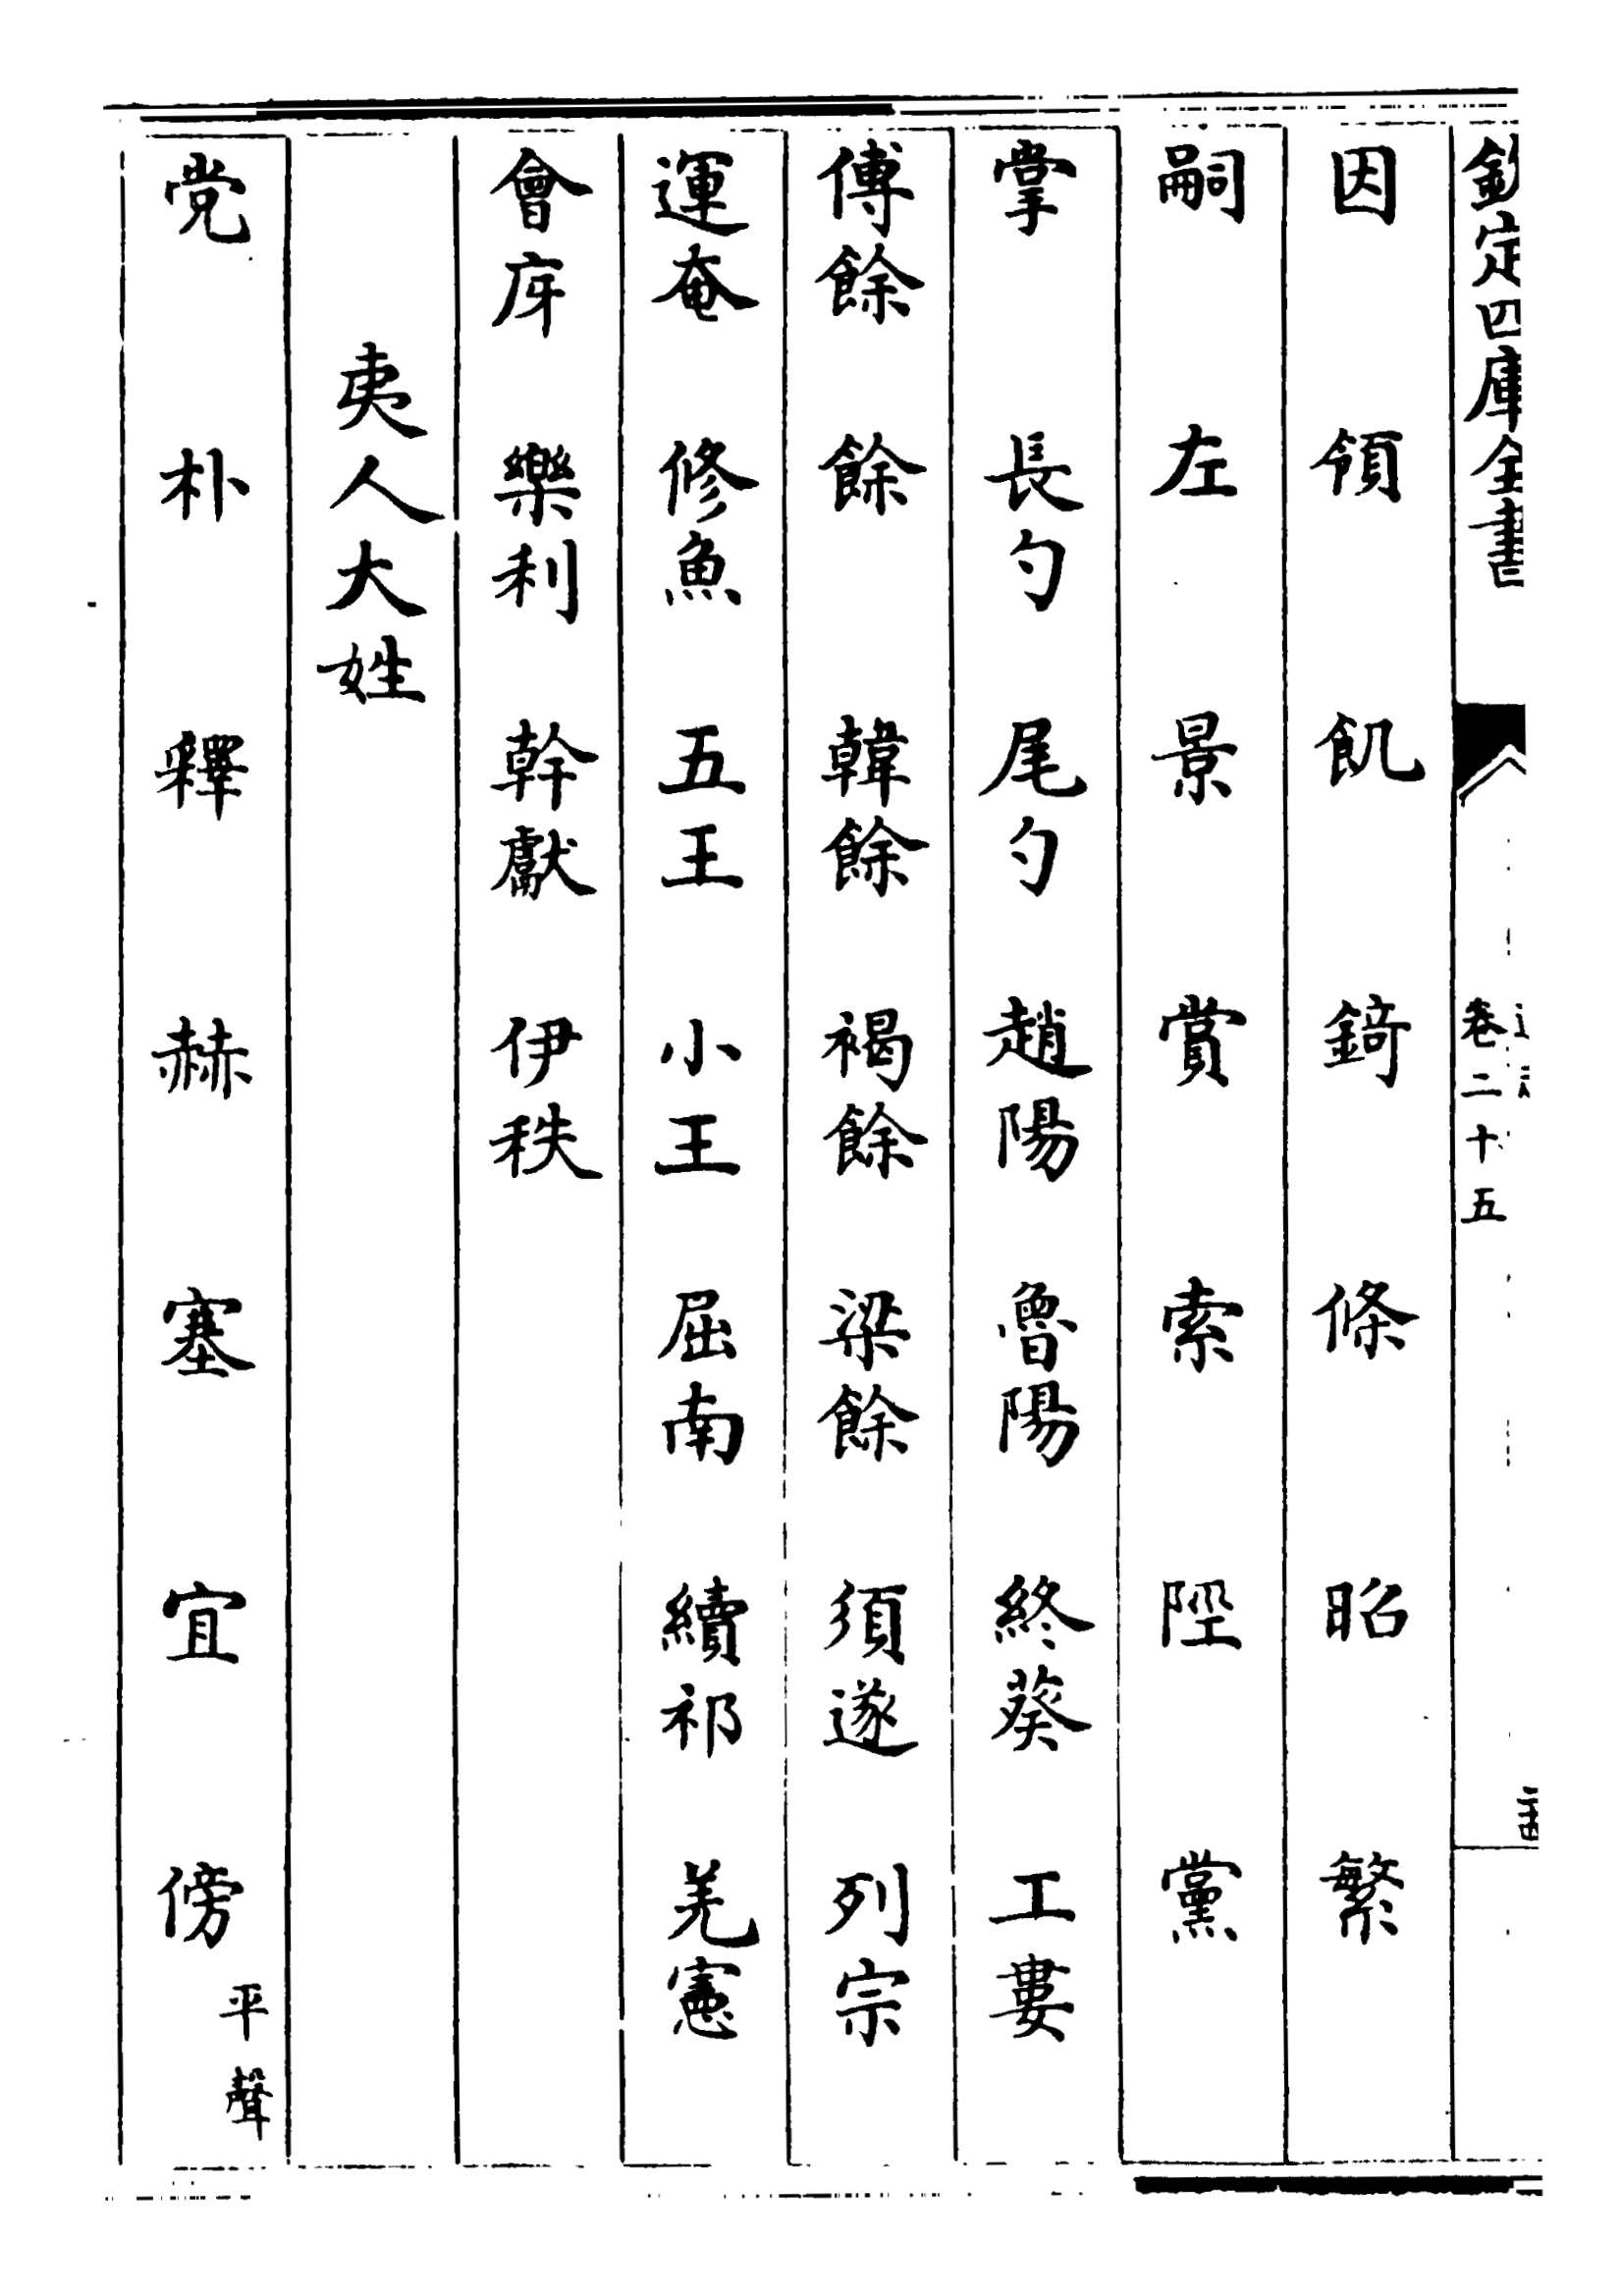 欽定四庫全書
卷二十五
因 領 飢 錡 條 昭 繁
嗣 左 景 賞 索 陘 黨
掌 長勺 尾勺 趙陽 魯陽 終葵 工婁
傅餘 餘 韓餘 褐餘 梁餘 須遂 列宗
運奄 修魚 五王 小王 屈南 續祁 羌憲
會序 樂利 幹獻 伊秩
夷人大姓
党 朴 釋 赫 塞 宜 傍平聲